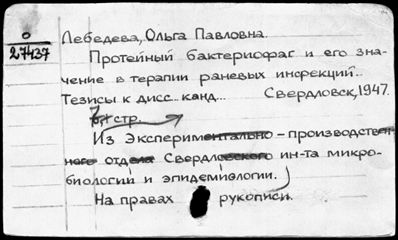 О
27437
Лебедева, Ольга Павловна.
Протейный бактериофаг и его зна-
чение в терапии раневых инфекций..
Тезисы к дисс.. канд... Свердловск, 1947.
стр.
Из Экспериментально-производствен-
ного отдела Свердловского ин-та микро-
биологии и эпидемиологии.
На правах рукописи.